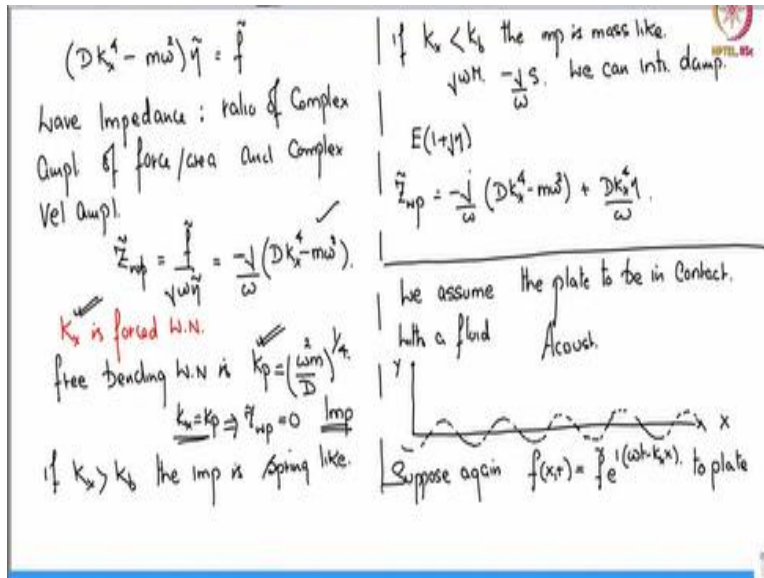 (Dkₓ⁴ - mω²) η̃ = f̃
Wave Impedance : ratio of Complex
Ampl of force/area and Complex
Vel ampl.
Z̃wp = f̃ / jωη̃ = -j/ω (Dkₓ⁴ - mω²).
kₓ is forced W.N.
free bending W.N is kp = (ω²m/D)^1/4.
kₓ = kp ⇒ Z̃wp = 0 Imp
if kₓ > kb the imp is Spring like.
if kₓ < kb the mp is mass like.
jωM. -j/ω S. We can intr. damp.
E(1+jη)
Z̃wp = -j/ω (Dkₓ⁴ - mω²) + Dkₓ⁴η/ω.
We assume the plate to be in Contact.
With a fluid Acoust.
Y
X
Suppose again f(x,t) = f̃ e^j(ωt-kₓx). to plate